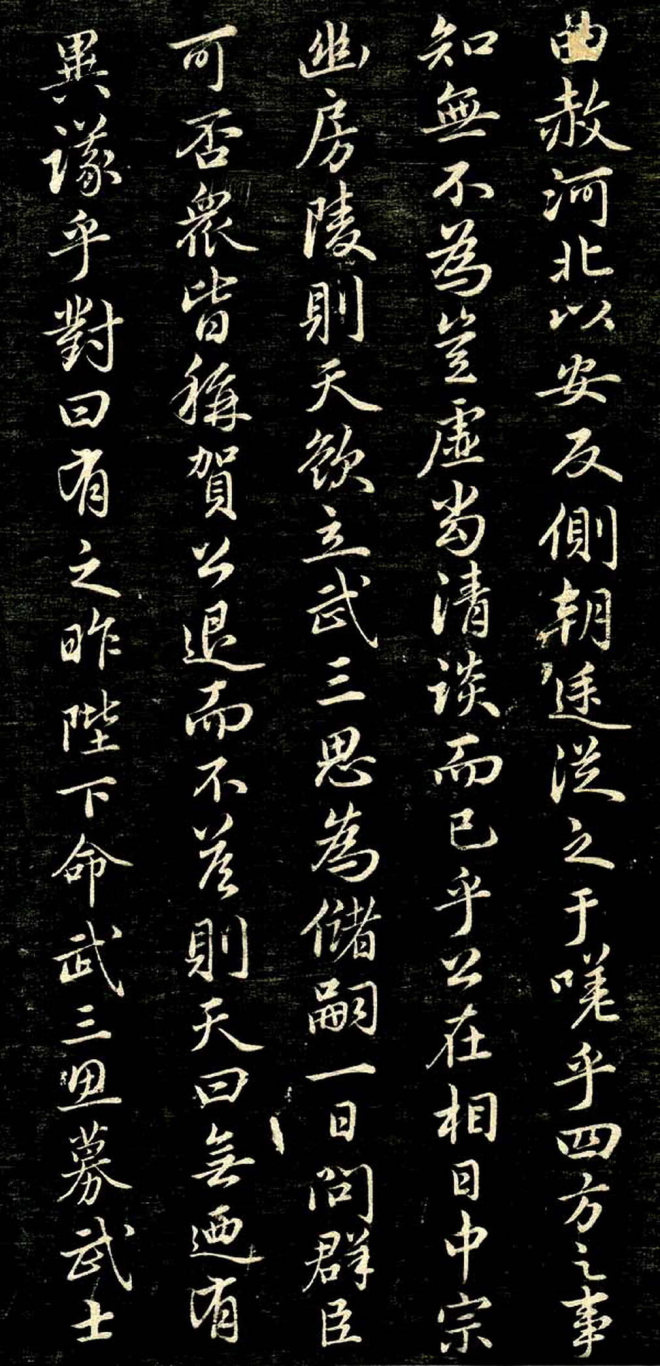 曲赦河北以安反側朝廷從之于嗟乎四方之事
知無不為豈虛尚清談而已乎公在相日中宗
幽房陵則天欲立武三思為儲嗣一日問群臣
可否眾皆稱賀公退而不答則天曰無廼有
異議乎對曰有之昨陛下命武三思募武士